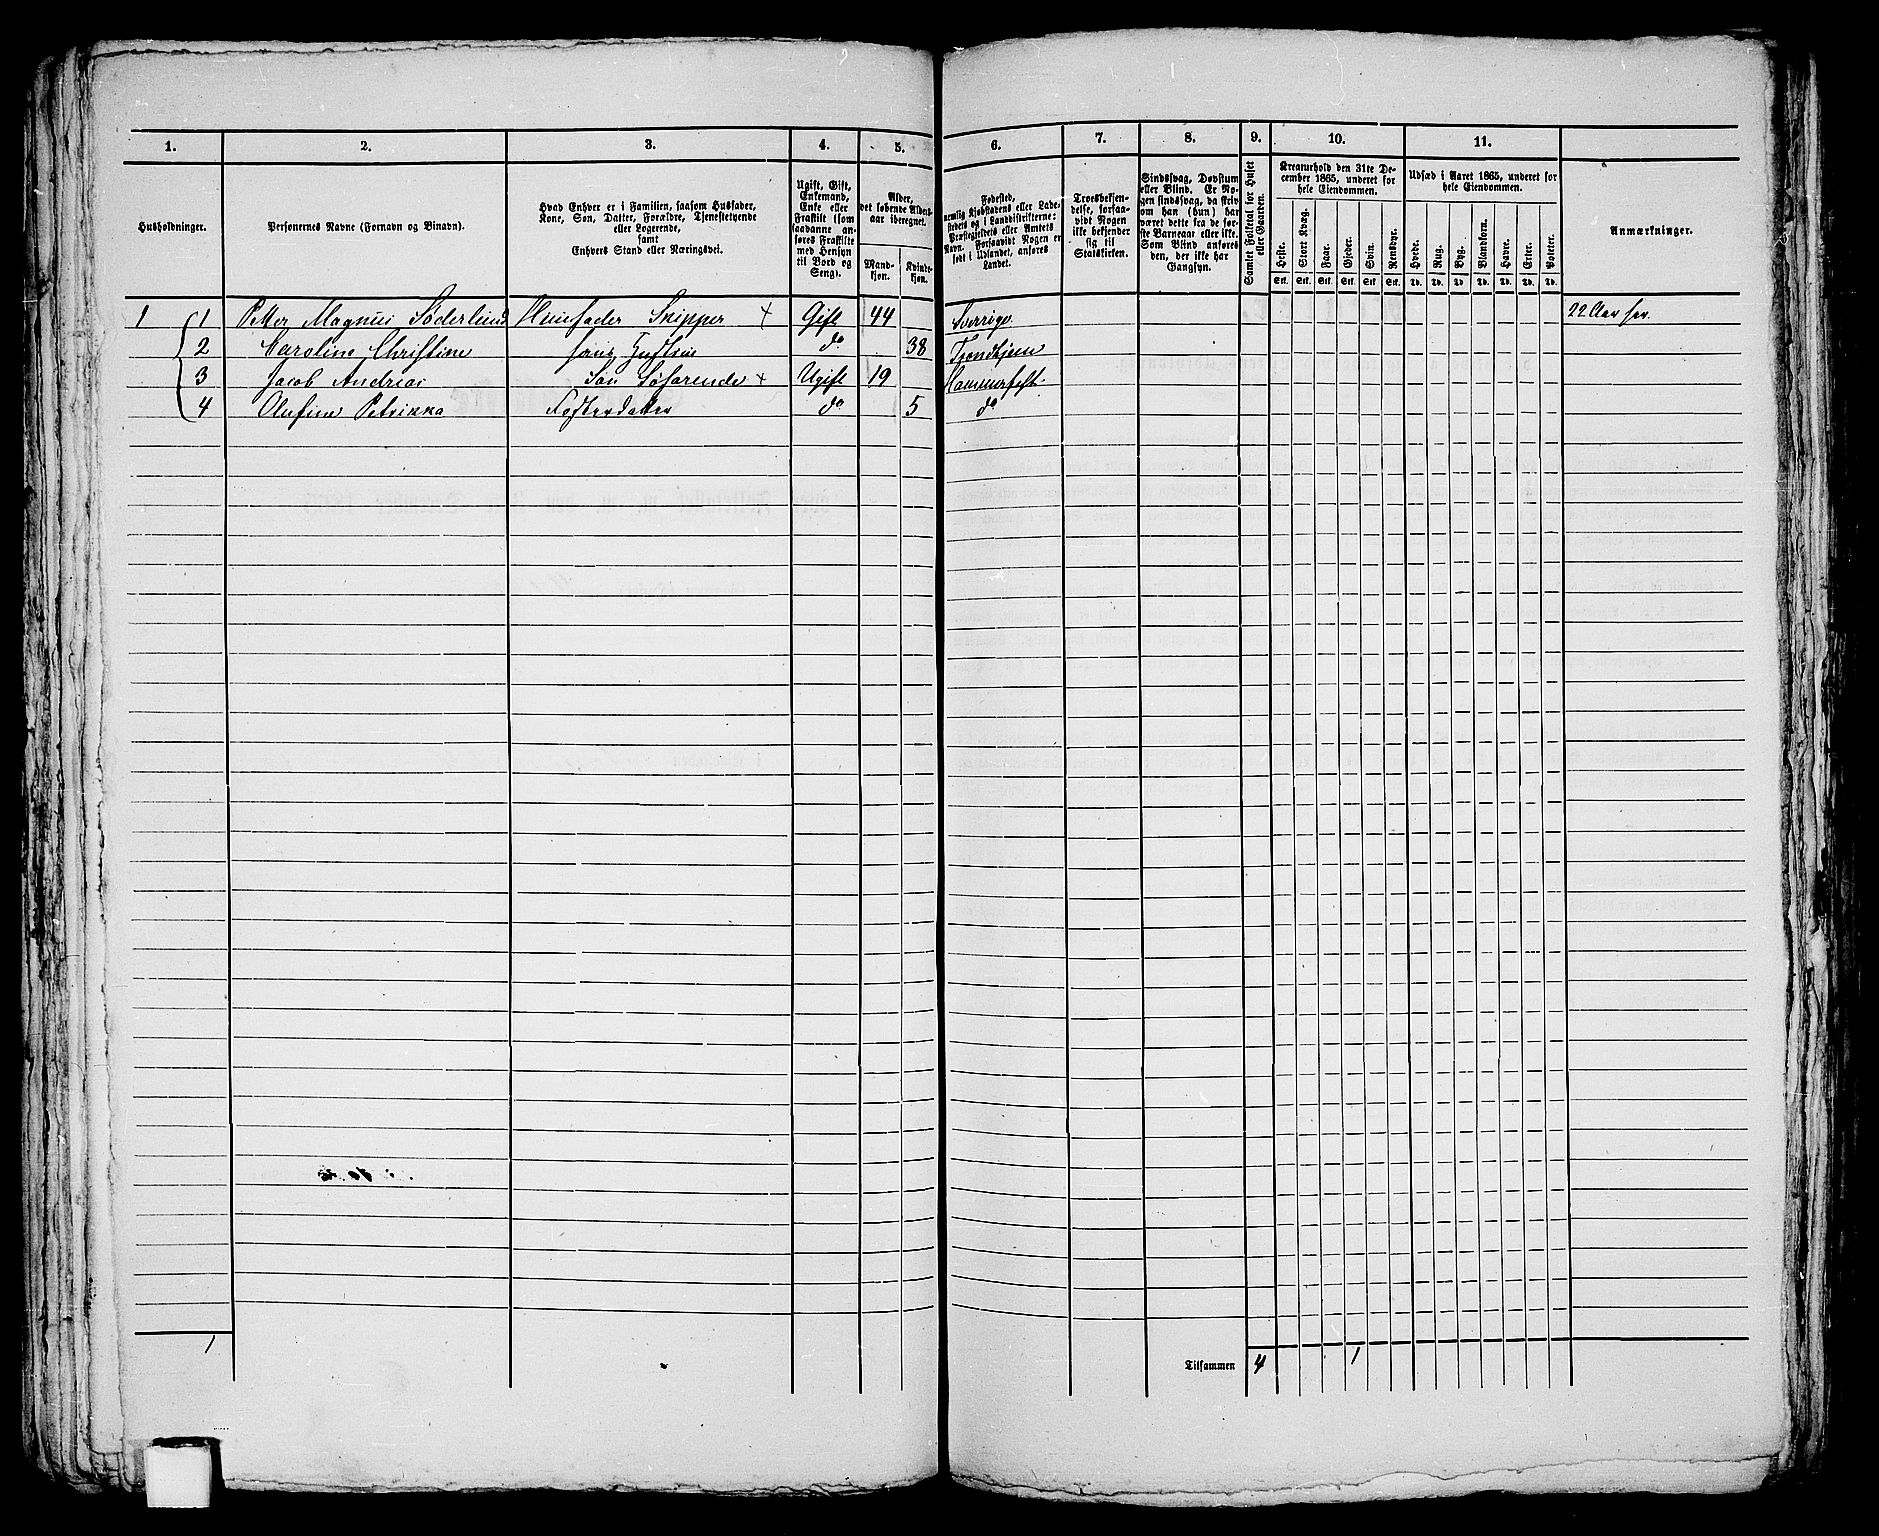 1. 2. 3. 4. 5. 6. 7. 8. 9. 10. 11.
Husholdninger.
Personernes Navne (Fornavn og Binavn).
Hvad Enhver er i Familien, saasom Husfader,
Kone, Søn, Datter, Forældre, Tjenestetyende
eller Logerende,
samt
Enhvers Stand eller Næringsvei.
Ugift, Gift,
Enkemand,
Enke eller
Fraskilt (som
saadanne an-
føres Fraskilte
med Hensyn
til Bord og
Seng).
Alder,
det løbende Alders-
aar iberegnet.
Mand-
kjøn.
Kvinde-
kjøn.
Fødested,
nemlig Kjøbstadens eller Lade-
stedets og i Landdistrikterne:
Præstegjeldets eller Amtets
Navn. Forsaavidt Nogen er
født i Udlandet, anføres
Landet.
Troesbekjen-
delse, forsaa-
vidt Nogen
ikke bekjender
sig til
Statskirken.
Sindssvag, Døvstum
eller Blind. Er No-
gen sindssvag, da skriv
om han (hun) har
været dette fra de før-
ste Barneaar eller ikke.
Som Blind anføres
den, der ikke har
Gangsyn.
Samlet Folketal for Huset
eller Gaarden.
Kreaturhold den 31te De-
cember 1865, underet for
hele Eiendommen.
Heste. Stort Kvæg. Faar. Gjeder. Svin. Rensdyr.
Stk. Stk. Stk. Stk. Stk. Stk.
Udsæd i Aaret 1865, underet for
hele Eiendommen.
Hvede. Rug. Byg. Blandkorn. Havre. Erter. Poteter.
Td. Td. Td. Td. Td. Td. Td.
Anmærkninger.
1 1 Petter Magnus Söderlund Huusfader Skipper + Gift 44 Sverrige 22 Aar her.
2 Caroline Christine hans Hustrue do 38 Trondhjem
3 Jacob Andreas Søn Søfarende + Ugift 19 Hammerfest
4 Olufine Petrikka Fosterdatter do 5 do
1 Tilsammen 4 1